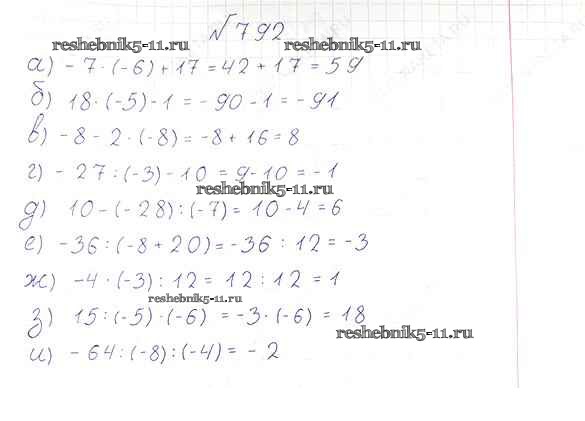 №792
reshebnik5-11.ru reshebnik5-11.ru
а) -7·(-6)+17=42+17=59
б) 18·(-5)-1=-90-1=-91
в) -8-2·(-8)=-8+16=8
г) -27:(-3)-10=9-10=-1
reshebnik5-11.ru
д) 10-(-28):(-7)=10-4=6
е) -36:(-8+20)=-36:12=-3
ж) -4·(-3):12=12:12=1
reshebnik5-11.ru
з) 15:(-5)·(-6)=-3·(-6)=18
reshebnik5-11.ru
и) -64:(-8):(-4)=-2